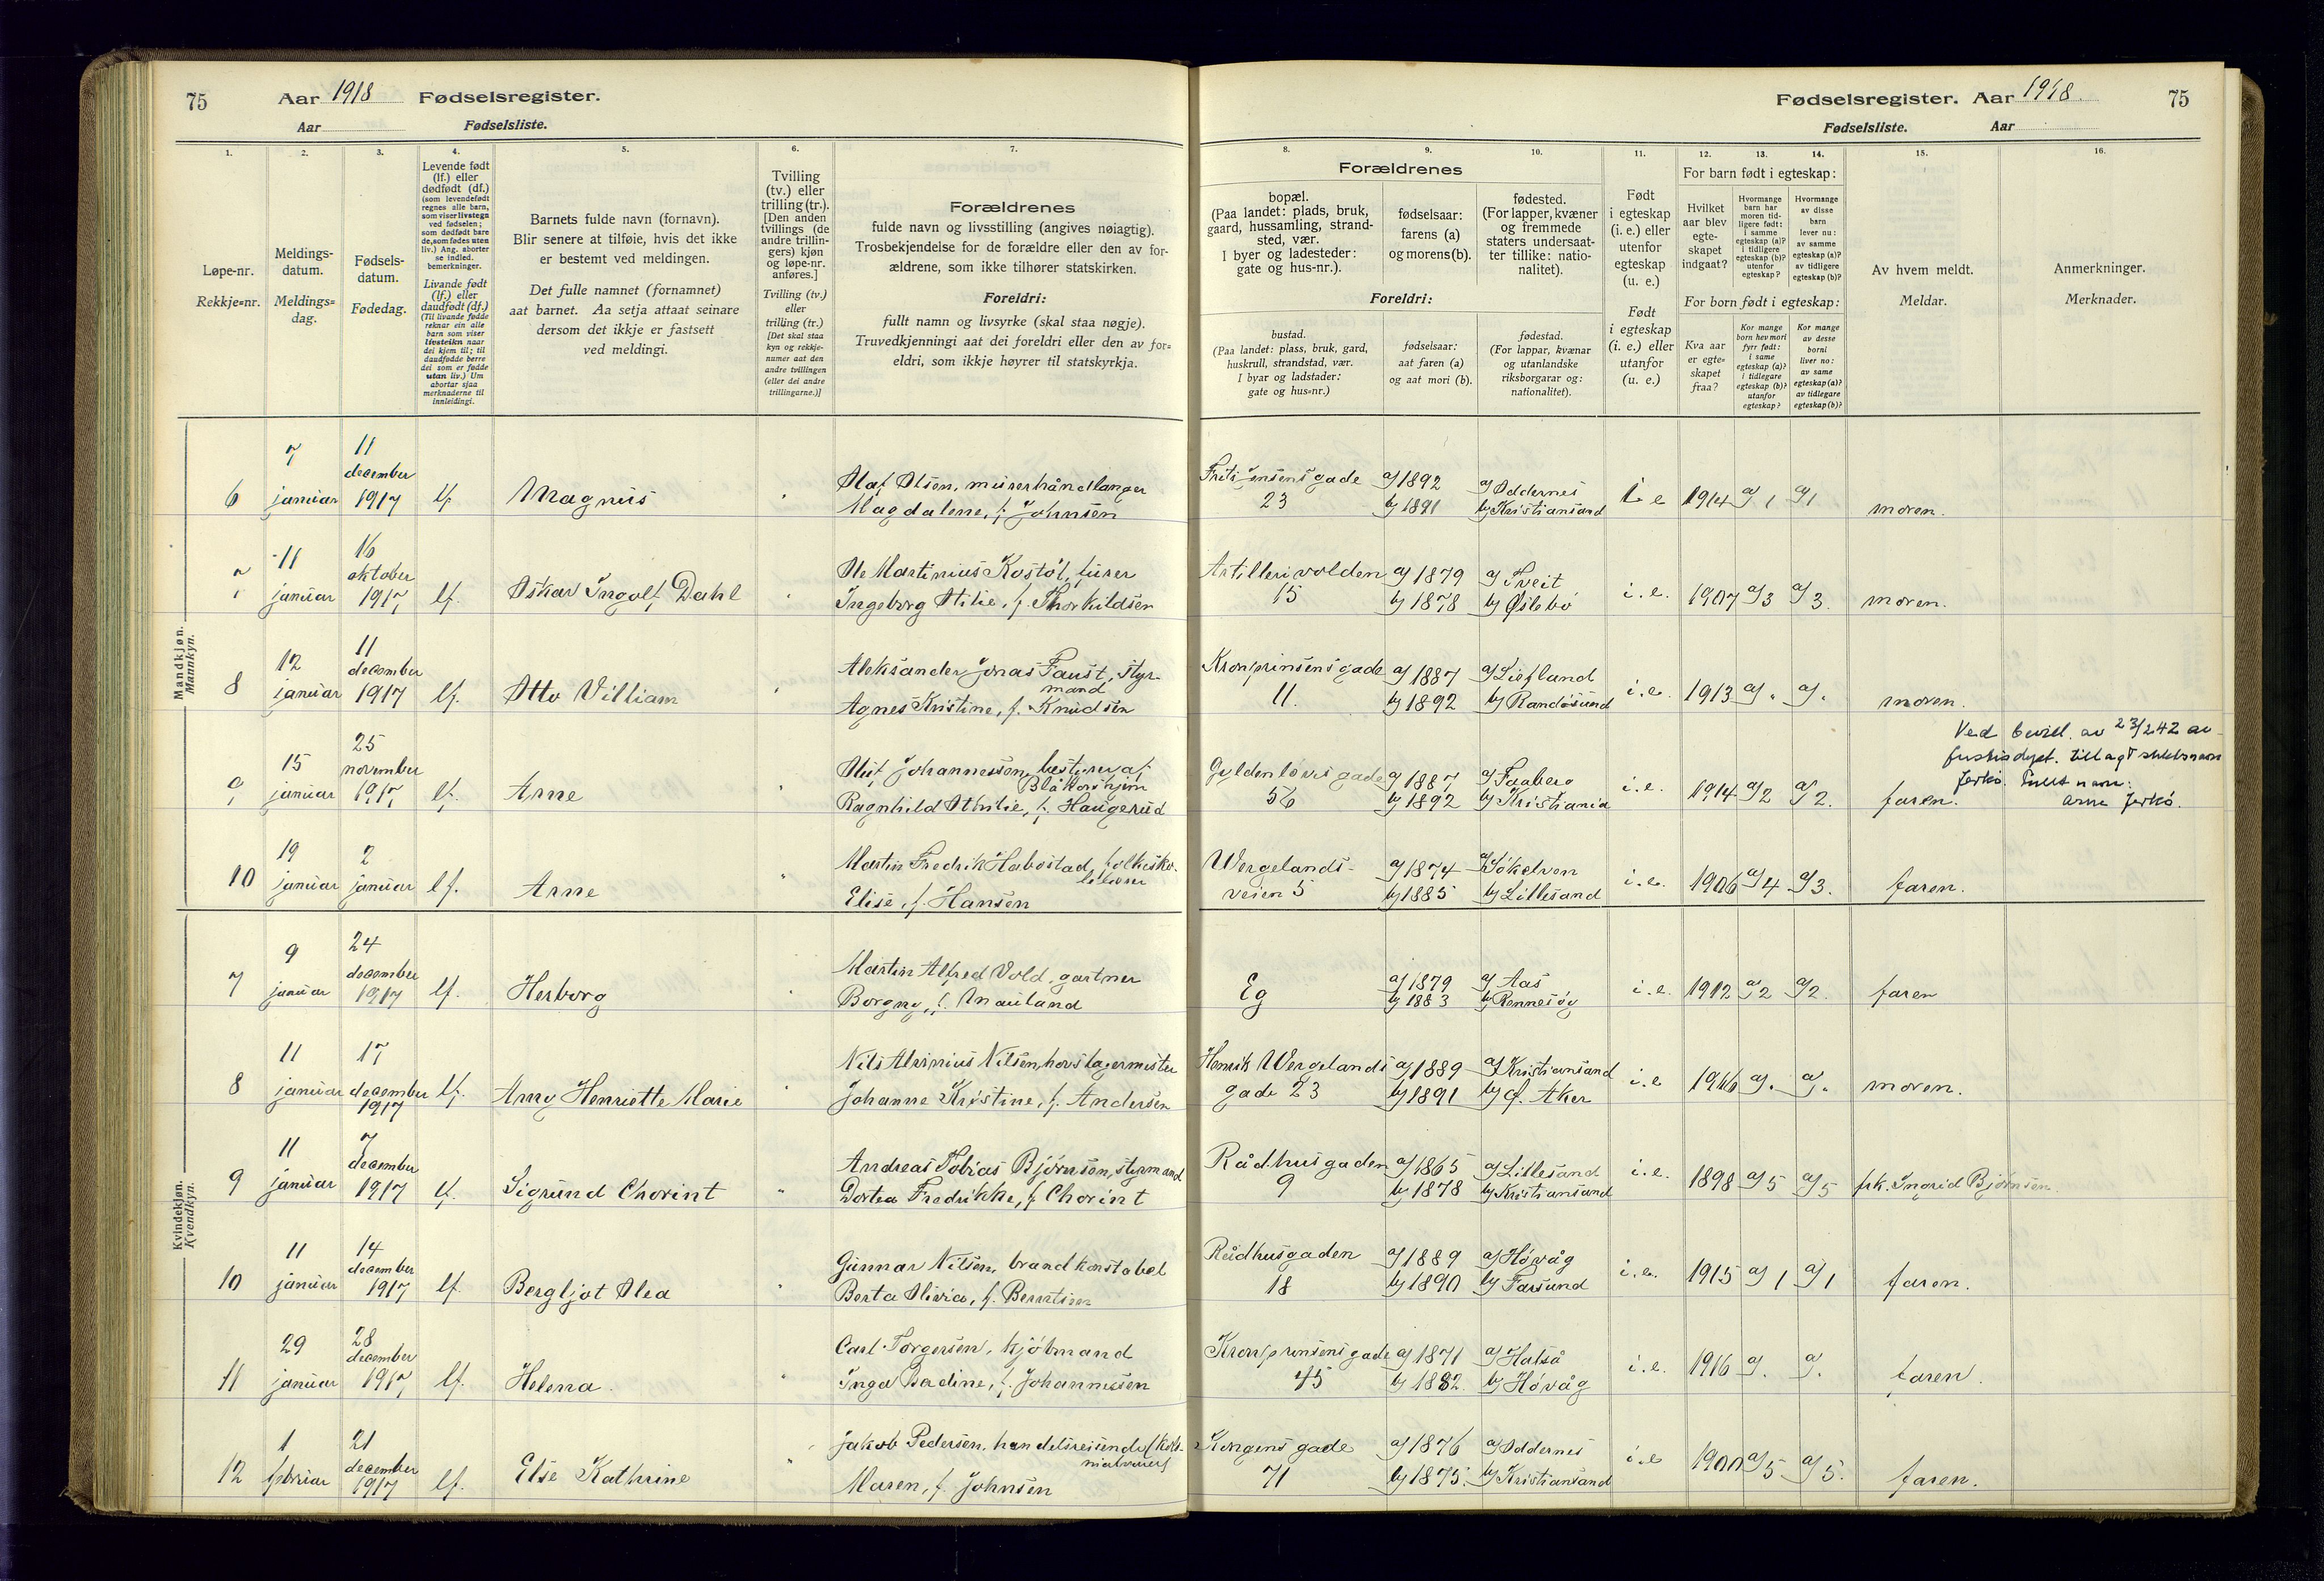 75 Aar 1918 Fødselsregister.
Aar Fødselsliste.
Fødselsregister. Aar 1918. 75
Fødselsliste. Aar
1.
Løpe-nr.
Rekkje=nr.
2.
Meldings-
datum.
Meldings=
dag.
3.
Fødsels-
datum.
Fødedag.
4.
Levende født
(lf.) eller
dødfødt (df.)
(som levendefødt
regnes alle barn,
som viser livstegn
ved fødselen;
som dødfødt bare
de, som fødes uten
liv.) Ang. aborter
se indled.
bemerkninger.
Livande født
(lf.) eller
daudfødt (df.)
(Til livande fødde
reknar ein alle
barn som viser
livsteikn naar
dei kjem til; til
daudfødde berre
dei som er fødde
utan liv.) Um
abortar sjaa
merknaderne til
innleidingi.
5.
Barnets fulde navn (fornavn).
Blir senere at tilføie, hvis det ikke
er bestemt ved meldingen.
Det fulle namnet (fornamnet)
aat barnet. Aa setja attaat seinare
dersom det ikkje er fastsett
ved meldingi.
6.
Tvilling
(tv.) eller
trilling (tr.).
[Den anden
tvillings (de
andre trillin-
gers) kjøn
og løpe-nr.
anføres.]
Tvilling (tv.)
eller
trilling (tr.)
[Det skal staa
kyn og rekkje-
numer aat den
andre tvillingen
(eller dei andre
trillingarne.)]
7.
Forældrenes
fulde navn og livsstilling (angives nøiagtig).
Trosbekjendelse for de forældre eller den av for-
ældrene, som ikke tilhører statskirken.
Foreldri:
fullt namn og livsyrke (skal staa nøgje).
Truvedkjenningi aat dei foreldri eller den av for=
eldri, som ikkje høyrer til statskyrkja.
Forældrenes
8.
bopæl.
(Paa landet: plads, bruk,
gaard, hussamling, strand-
sted, vær.
I byer og ladesteder:
gate og hus-nr.).
9.
fødselsaar:
farens (a)
og morens (b).
10.
fødested.
(For lapper, kvæner
og fremmede
staters undersaat-
ter tillike: natio-
nalitet).
Foreldri:
bustad.
(Paa landet: plass, bruk, gard,
huskrull, strandstad, vær.
I byar og ladstader:
gate og hus=nr.)
fødselsaar:
aat faren (a)
og aat mori (b).
fødestad.
(For lappar, kvænar
og utanlandske
riksborgarar og:
nationalitet).
11.
Født
i egteskap
(i. e.) eller
utenfor
egteskap
(u. e.)
Født
i egteskap
(i. e.) eller
utanfor
(u. e.)
12. 13. 14.
For barn født i egteskap:
Hvilket
aar blev
egte-
skapet
indgaat?
Hvormange
barn har
moren tid-
ligere født:
i samme
egteskap (a)?
i tidligere
egteskap (b)?
utenfor
egteskap?
Hvormange
av disse
barn
lever nu:
av samme
egteskap (a)?
av tidligere
egteskap (b)?
For born født i egteskap:
Kva aar
er egte=
skapet
fraa?
Kor mange
born hev mori
fyrr født:
i same
egteskap (a)?
i tidlegare
egteskap (b)?
utanfor
egteskap?
Kor mange
av desse
borni
liver no:
av same
egteskap (a)?
av tidlegare
egteskap (b)?
15.
Av hvem meldt.
Meldar.
16.
Anmerkninger.
Merknader.
Mandkjøn.
Mannkyn.
6 7 januar 11 december 1917 lf Magnus
Olaf Olsen, murerhåndlanger
Magdalene, f. Johnsen
23 a) 1892 b) 1891 a) Oddernes b) Kristiansand i e 1914 a) 1 a) 1 moren.
7 11 januar 16 oktober 1917 lf. Oskar Ingolf Dahl
Ole Martinius Kostøl, furer
Ingeborg Otilie, f. Thorkildsen
Artillerivolden 15 a) 1879 b) 1878 a) Tveit b) Øslebø i. e. 1907 a) 3 a) 3. moren.
8 12 januar 11 december 1917 lf. Otto William
Aleksander Jonas Faust, styr-
mand
Agnes Kristine, f. Knudsen
Kronprinsensgade 11. a) 1887 b) 1892 a) Liefland b) Randøsund i. e. 1913 a) . a) . moren.
9 15 januar 25 november 1917 lf. Arne
Oluf Johannessen, bestyrer af
Blåkorshjem
Ragnhild Othilie, f. Haugerud
Gyldenløvesgade 56 a) 1887 b) 1892 a) Faaberg b) Kristiania i. e. 1914 a) 2 a) 2. faren.
Ved bevill. av 23/2 42 av
justisdept. tillagt slektsnavn
Jerkø. Fullt navn:
Arne Jerkø.
10 19 januar 2 januar lf. Arne
Martin Fredrik Habostad, folkesko-
lelærer
Elise, f. Hansen
Wergelands-
veien 5 a) 1874 b) 1885 a) Søkelven b) Lillesand i. e. 1906 a) 4 a) 3. faren.
Kvindekjøn.
Kvendkyn.
7 9 januar 24 december 1917 lf. Herborg
Martin Alfred Vold, gartner
Borgny, f. Mauland
Eg a) 1879 b) 1883 a) Aas b) Rennesøy i. e. 1912 a) 2 a) 2. faren
8 11 januar 17 december 1917 lf. Arny Henriette Marie
Nils Alvinius Nilsen, hovslagermester
Johanne Kristine, f. Andersen
Henrik Wergelands
gade 23 a) 1889 b) 1891 a) Kristiansand b) Ø. Aker i. e 1916 a) . a) . moren.
9 11 januar 7 december 1917 lf. Sigrund Chorint
Andreas Tobias Bjørnsen, styrmand
Dortea Fredrikke, f Chorint
Rådhusgaden 9 a) 1865 b) 1878 a) Lillesand b) Kristiansand i. e. 1898 a) 5 a) 5 frk. Ingrid Bjørnsen
10 11 januar 14 december 1917 lf. Bergljot Olea
Gunnar Nilsen, brandkonstabel
Berta Olivia, f. Berntsen
Rådhusgaden 18 a) 1889 b) 1890 a) Høvåg b) Farsund i. e. 1915 a) 1 a) 1 faren.
11 29 januar 28 december 1917 lf. Helena.
Carl Torgersen, kjøbmand
Inga Badine, f. Johannessen
Kronprinsensgade 45 a) 1871 b) 1882. a) Halså b) Høvåg i. e. 1916 a) . a) . faren.
12 1 februar 21 december 1917 lf. Else Kathrine
Jakob Pedersen, handelsreisende
Maren, f. Johnsen
Kongens gade 71 a) 1876 b) 1875. a) Oddernes b) Kristiansand i. e 1900 a) 5 a) 5. faren.